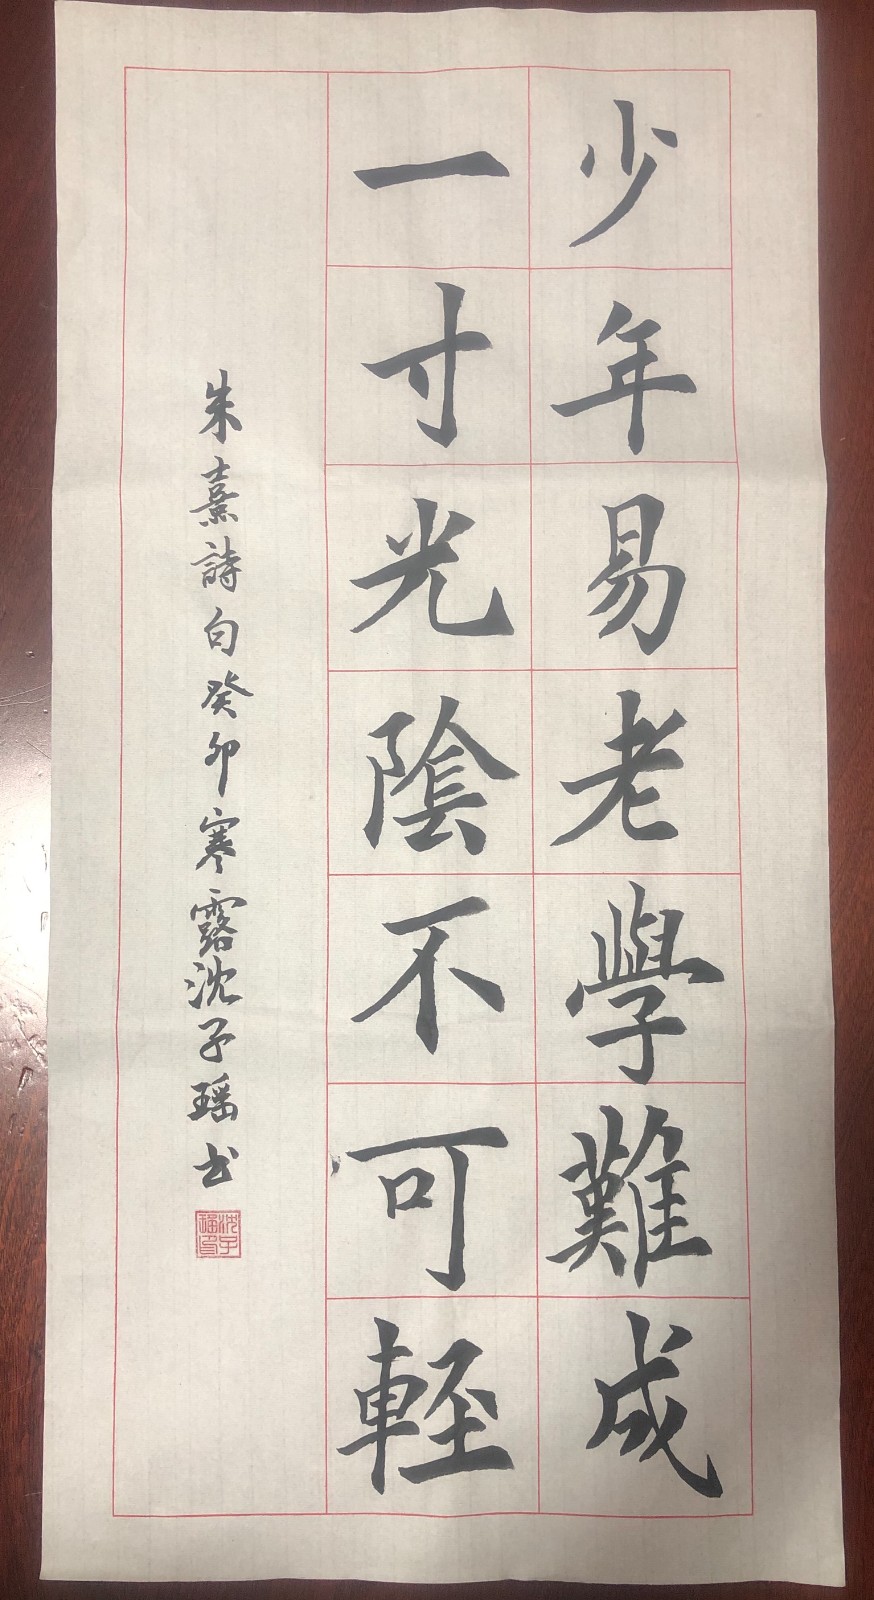 少年易老學難成
一寸光陰不可輕
朱熹詩句癸卯寒露沈子瑶书
沈子瑶印